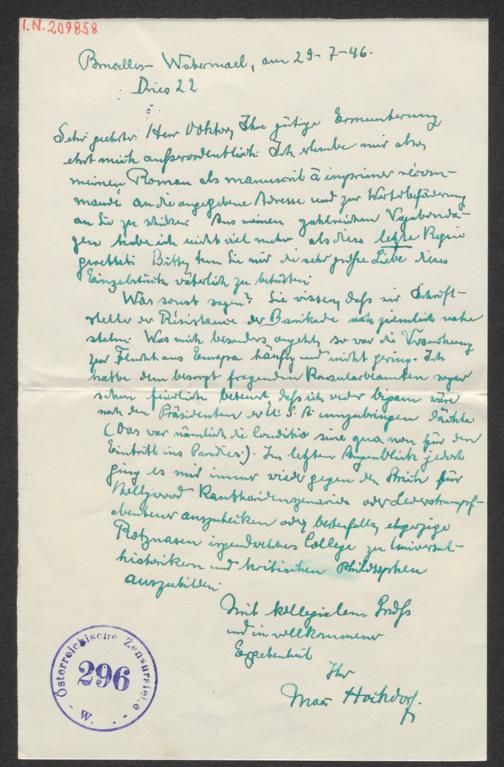 I.N. 209858
Bruxelles-Watermael, am 29-7-46.
Dries 22
Sehr geehrter Herr Doktor, Ihre gütige Ermunterung
ehrt mich außerordentlich. Ich erlaube mir also,
meinen Roman als manuscrit à imprimer récom-
mandé an die angegebene Adresse und zur Weiterbeförderung
an Sie zu schicken. Aus meinen zahlreichen Vagabondä-
gen habe ich nicht viel mehr als diese letzte Kopie
gerettet. Bitte, tun Sie mir die sehr große Liebe, dieses
Einzelstück väterlich zu behüten.
Was sonst sagen? Sie wissen, daß wir Schrift-
steller der Résistance der Barikade sehr ziemlich nahe
stehn. Was mich besonders angeht, so war die Versuchung
zur Flucht aus Europa häufig und nicht gering. Ich
hatte dem besorgt fragenden Konsularbeamten sogar
schon feierlich beteuert, daß ich weder bigam wäre
noch den Präsidenten der U.S.A. umzubringen dächte
(Das war nämlich die Conditio sine qua non für den
Eintritt ins Paradies.). Im letzten Augenblick jedoch
ging es mir immer wieder gegen den Strich, für
Hollywood Szenarios oder Lederstrumpf-
abenteuer auszuhecken oder bestenfalls ehrgeizige
Rotznasen irgendwelches College zu Universal-
historikern und kritischen Philosophen
auszubilden.
Mit kollegialem Gruß
und in vollkommener
Ergebenheit
Ihr
Max Hochdorf.
Österreichische Zensurstelle
296
- W. -